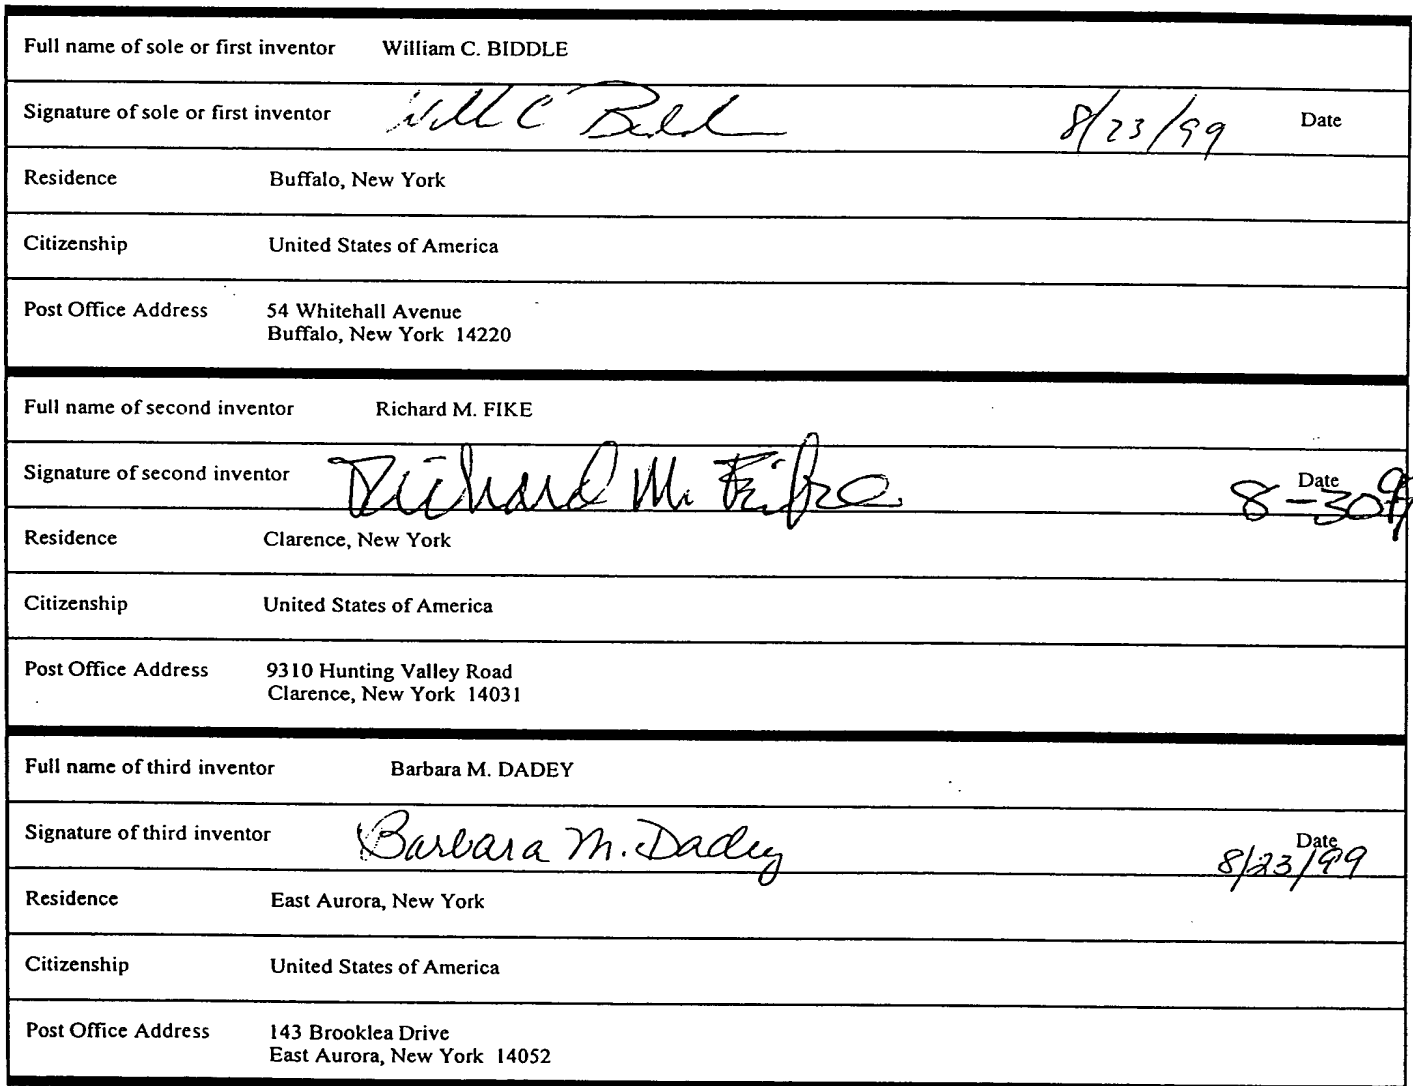 Full name of sole or first inventor William C. BIDDLE
Signature of sole or first inventor Will C Biddle 8/23/99 Date
Residence Buffalo, New York
Citizenship United States of America
Post Office Address 54 Whitehall Avenue
Buffalo, New York 14220
Full name of second inventor Richard M. FIKE
Signature of second inventor Richard M. Fike Date
8-30
Residence Clarence, New York
Citizenship United States of America
Post Office Address 9310 Hunting Valley Road
Clarence, New York 14031
Full name of third inventor Barbara M. DADEY
Signature of third inventor Barbara M. Dadey Date
8/23/99
Residence East Aurora, New York
Citizenship United States of America
Post Office Address 143 Brooklea Drive
East Aurora, New York 14052